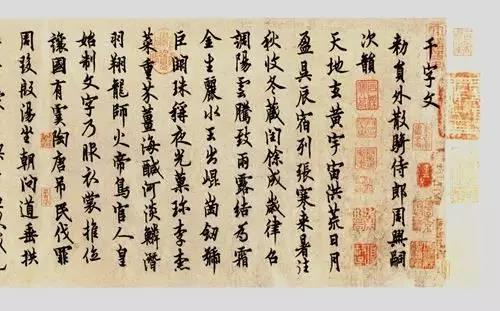 千字文
勑員外散騎侍郎周興嗣
次韻
天地玄黃宇宙洪荒日月
盈昃辰宿列張寒来暑往
秋收冬藏閏餘成歲律召
調陽雲騰致雨露結為霜
金生麗水玉出崐崗劒號
巨闕珠稱夜光菓珎李柰
菜重芥薑海醎河淡鱗潛
羽翔龍師火帝鳥官人皇
始制文字乃服衣裳推位
讓國有虞陶唐吊民伐罪
周發殷湯坐朝問道垂拱